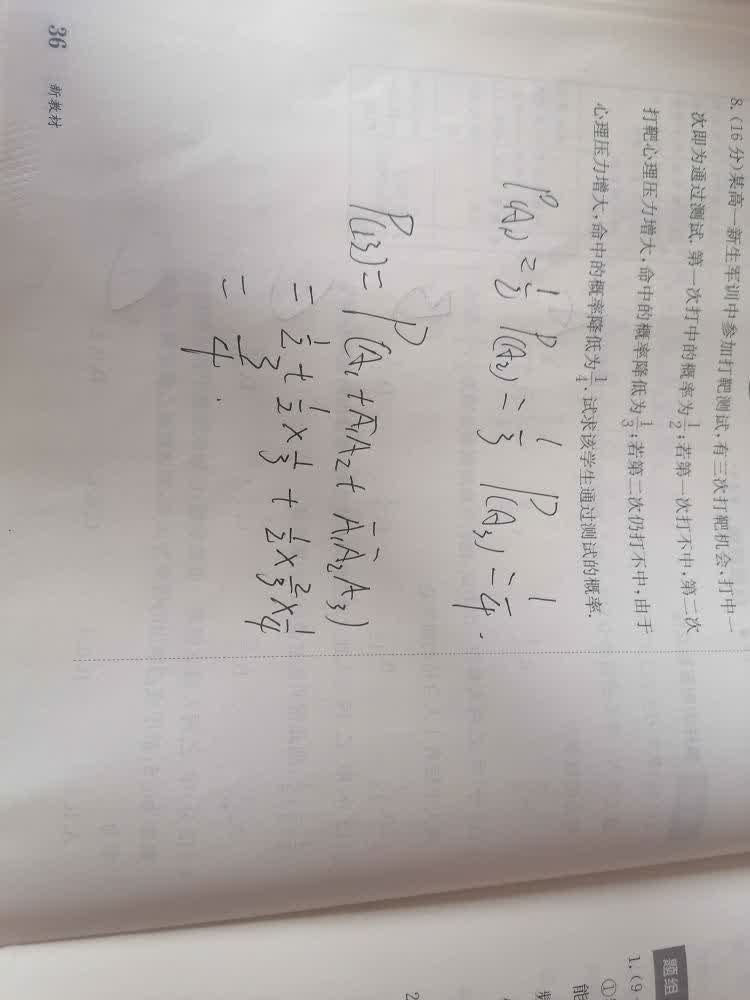 8.(16分)某高一新生军训中参加打靶测试,有三次打靶机会,打中一
次即为通过测试.第一次打中的概率为1/2;若第一次打不中,第二次
打靶心理压力增大,命中的概率降低为1/3;若第二次仍打不中,由于
心理压力增大,命中的概率降低为1/4,试求该学生通过测试的概率.
P(A₁)=1/2 P(A₂)=1/3 P(A₃)=1/4.
P(B)=P(A₁+Ā₁A₂+Ā₁Ā₂A₃)
=1/2+1/2×1/3+1/2×2/3×1/4
=3/4.
36 新教材
题组
1.(9
①
能
2